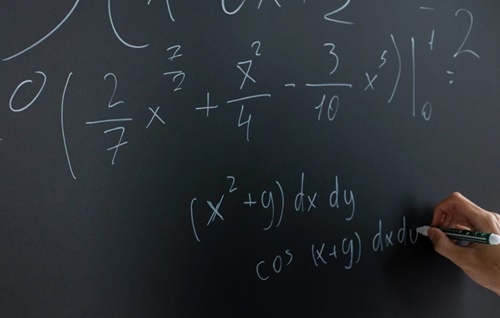 0 ( 2/7 x^(7/2) + x^2/4 - 3/10 x^5 ) |_0^1 =
(x^2 + y) dx dy
cos (x+y) dx dy